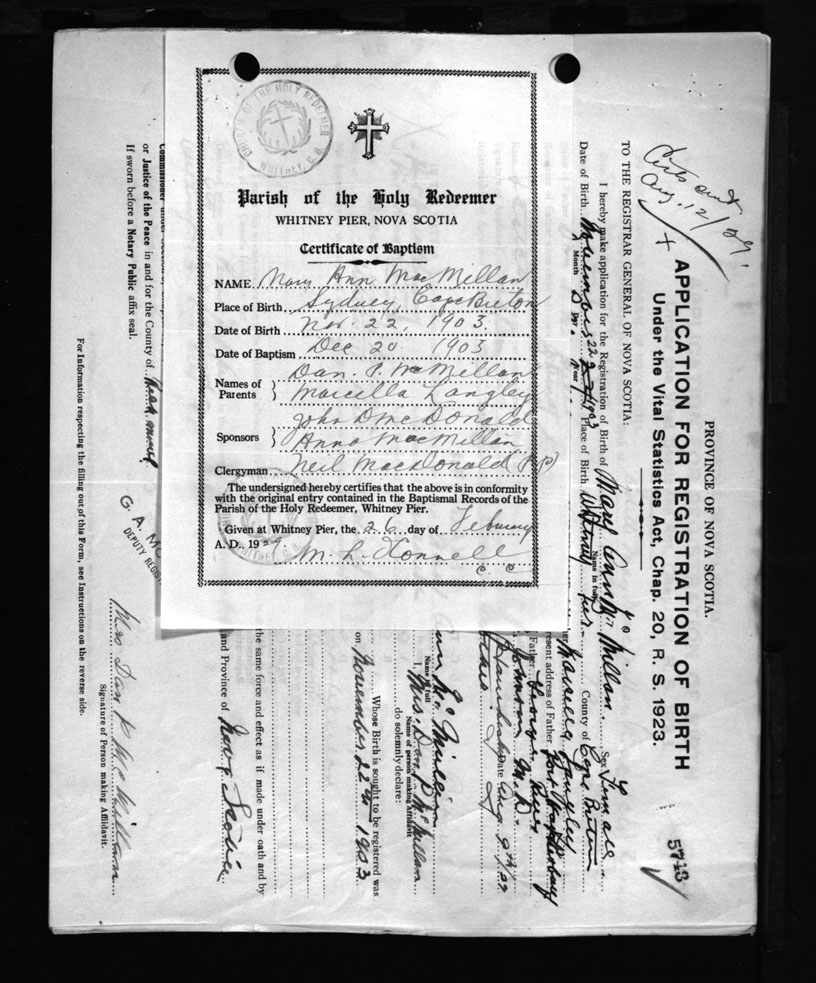 CHURCH OF THE HOLY REDEEMER
WHITNEY, C. B.
Parish of the Holy Redeemer
WHITNEY PIER, NOVA SCOTIA
Certificate of Baptism
NAME Mary Ann MacMillan
Place of Birth Sydney, Cape Breton
Date of Birth Nov. 22, 1903
Date of Baptism Dec 20 1903
Names of Parents } Dan. P. McMillan
Marcella Langley
Sponsors } John D McDonald
Anna MacMillan
Clergyman Neil MacDonald (P.P)
The undersigned hereby certifies that the above is in conformity
with the original entry contained in the Baptismal Records of the
Parish of the Holy Redeemer, Whitney Pier.
Given at Whitney Pier, the 26 day of February
A. D., 1929
C. C.
PROVINCE OF NOVA SCOTIA.
APPLICATION FOR REGISTRATION OF BIRTH
Under the Vital Statistics Act, Chap. 20, R. S. 1923.
5713
Aug. 12/29.
TO THE REGISTRAR GENERAL OF NOVA SCOTIA:
I hereby make application for the Registration of Birth of Mary Ann Mc Millan. Sex Female
Name in full
Date of Birth November 22 1903 Place of Birth Whitney Pier County of Cape Breton
Month Day Year
Marcella Langley
resent address of Father Port Hawkesbury
Father
M. D.
Date Aug 9th/29
Mc Millan
Name in full
I, Mrs Dan P McMillan
Name of person making Affidavit
do solemnly declare:
Whose Birth is sought to be registered was
on November 22nd 1903
the same force and effect as if made under oath and by
and Province of Nova Scotia
Commissioner under Section
or Justice of the Peace in and for the County of Richmond
If sworn before a Notary Public affix seal.
G. A. MC
DEPUTY REGIS
Mrs Dan P McMillan
Signature of Person making Affidavit.
For Information respecting the filling out of this Form, see Instructions on the reverse side.